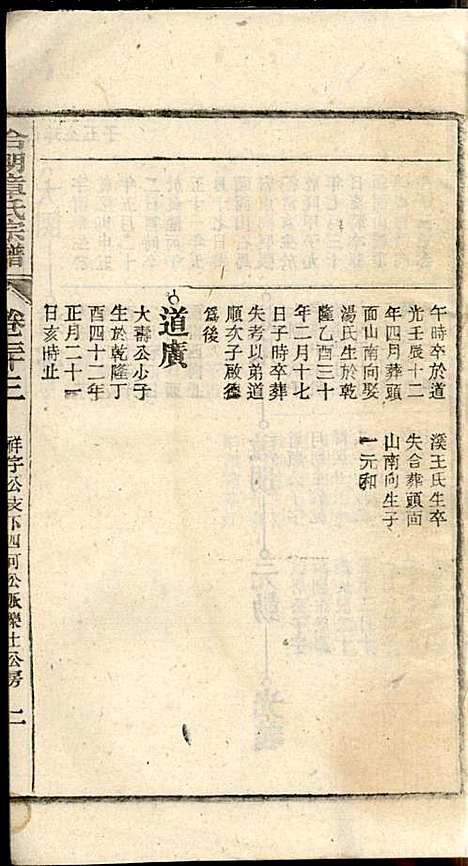 午時卒於道
光壬辰十二
年四月葬頭
面山南向娶
湯氏生於乾
隆乙酉三十
年二月十七
日子時卒葬
失考以弟道
順次子啟德
為後
道廣
大壽公少子
生於乾隆丁
酉四十二年
正月二十一
日亥時止
溪王氏生卒
失合葬頭面
山南向生子
一元和
章氏宗譜
卷三十二
祥字公支下四河公派
士公房
二